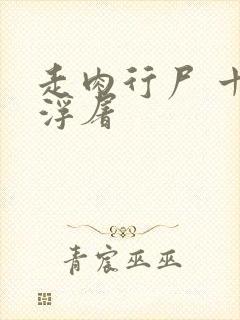 走肉行尸 十
浮屠
青宸巫巫